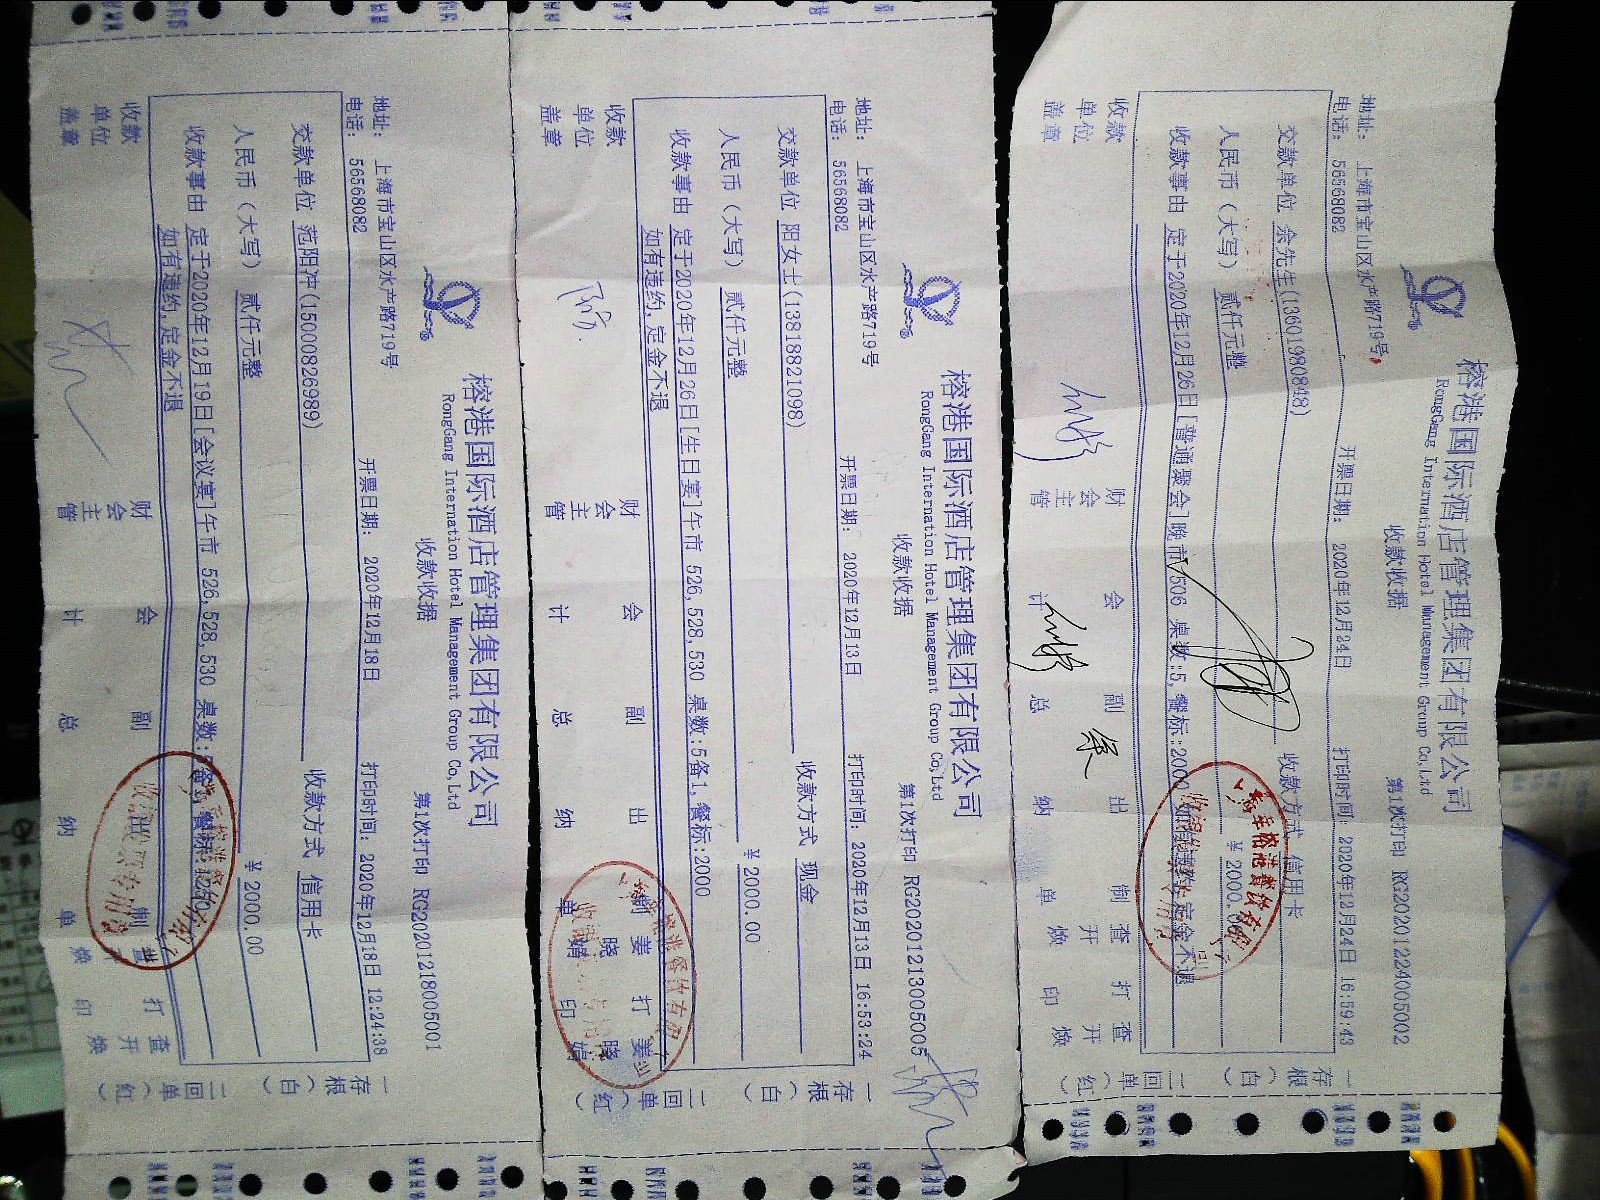 榕港国际酒店管理集团有限公司
RongGang International Hotel Management Group Co,Ltd
收款收据
第1次打印 RG20201224005002
地址: 上海市宝山区水产路719号
电话: 56568082
开票日期: 2020年12月24日
打印时间: 2020年12月24日 16:59:43
交款单位 余先生(13601980848)
收款方式 信用卡
人民币(大写) 贰仟元整
¥ 2000.00
收款事由 定于2020年12月26日[普通聚会]晚市 506 桌数:5,餐标:2000 如有违约,定金不退
收款单位盖章
财会主管
会计
副总
出纳
制单 查开焕
打印 查开焕
一存根(白)
二回单(红)
榕港国际酒店管理集团有限公司
RongGang International Hotel Management Group Co,Ltd
收款收据
第1次打印 RG20201213005005
地址: 上海市宝山区水产路719号
电话: 56568082
开票日期: 2020年12月13日
打印时间: 2020年12月13日 16:53:24
交款单位 阳女士(13818821098)
收款方式 现金
人民币(大写) 贰仟元整
¥ 2000.00
收款事由 定于2020年12月26日[生日宴]午市 526,528,530 桌数:5备1,餐标:2000
如有违约,定金不退
收款单位盖章
财会主管
会计
副总
出纳
制单 姜晓婧
打印 姜晓婧
一存根(白)
二回单(红)
榕港国际酒店管理集团有限公司
RongGang International Hotel Management Group Co,Ltd
收款收据
第1次打印 RG20201218005001
地址: 上海市宝山区水产路719号
电话: 56568082
开票日期: 2020年12月18日
打印时间: 2020年12月18日 12:24:38
交款单位 范阳冲(15000826989)
收款方式 信用卡
人民币(大写) 贰仟元整
¥ 2000.00
收款事由 定于2020年12月19日[会议宴]午市 526,528,530 桌数:5备
如有违约,定金不退
收款单位盖章
财会主管
会计
副总
出纳
制单 查开焕
打印 查开焕
一存根(白)
二回单(红)